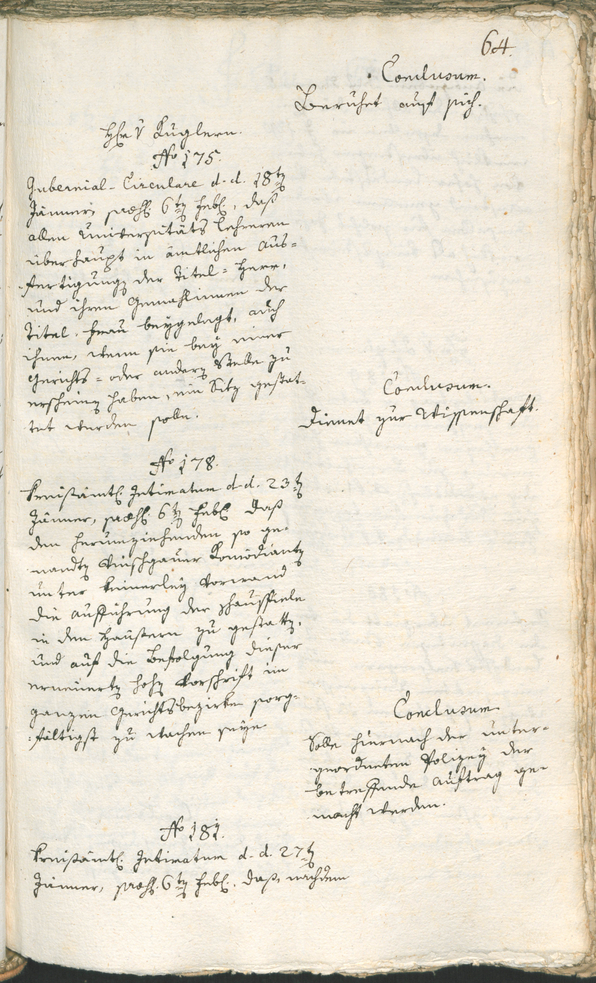 64.
Conclusum.
Beruhet auf sich.
Hr. v Kuglern.
No 175.
Gubernial-Circulare d. d. 18ten
Jänner, præs. 6ten Febr., daß
allen Universitäts Lehreren
überhaupt in ämtlichen Aus-
fertigungen der Titel-Herr,
und ihren Gemahlinnen der
Titel-Frau beygelegt, auch
ihnen, wenn sie bey einer
Gerichts- oder andern Stelle zu
erscheinen haben, ein Sitz gestat-
tet werden solle.
Conclusum.
Dienet zur Wissenschaft.
No 178.
Kreisämtl. Intimatum d. d. 23ten
Jänner, præs. 6ten Febr. daß
den herumziehenden so ge-
nandten Vinschgauer Komödianten
unter keinerley Vorwand
die Aufführung der Schauspiele
in den Häusern zu gestatten,
und auf die Befolgung dieser
erneuerten hohen Vorschrift im
ganzen Gerichtsbezirke sorg-
fältigst zu wachen seye.
Conclusum.
Solle hiernach der unter-
geordneten Polizey der
betreffende Auftrag ge-
macht werden.
No 181.
Kreisämtl. Intimatum d. d. 27ten
Jänner, præs. 6ten Febr. daß, nachdem